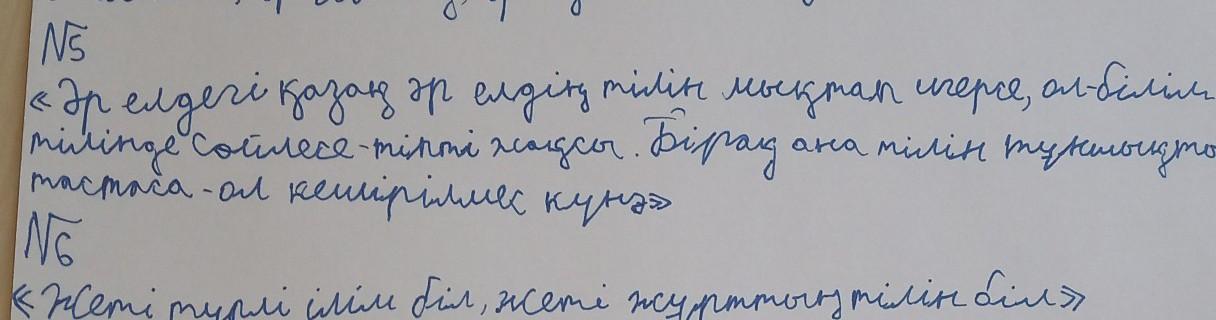 №5
«Әр елдегі қазақ әр елдің тілін мықтап игерсе, ол-білім
тілінде сөйлесе-тіпті жақсы. Бірақ ана тілін тұншықты
тастаса-ол кешірілмес күнә»
№6
«Жеті түрлі ілім біл, жеті жұрттың тілін біл»